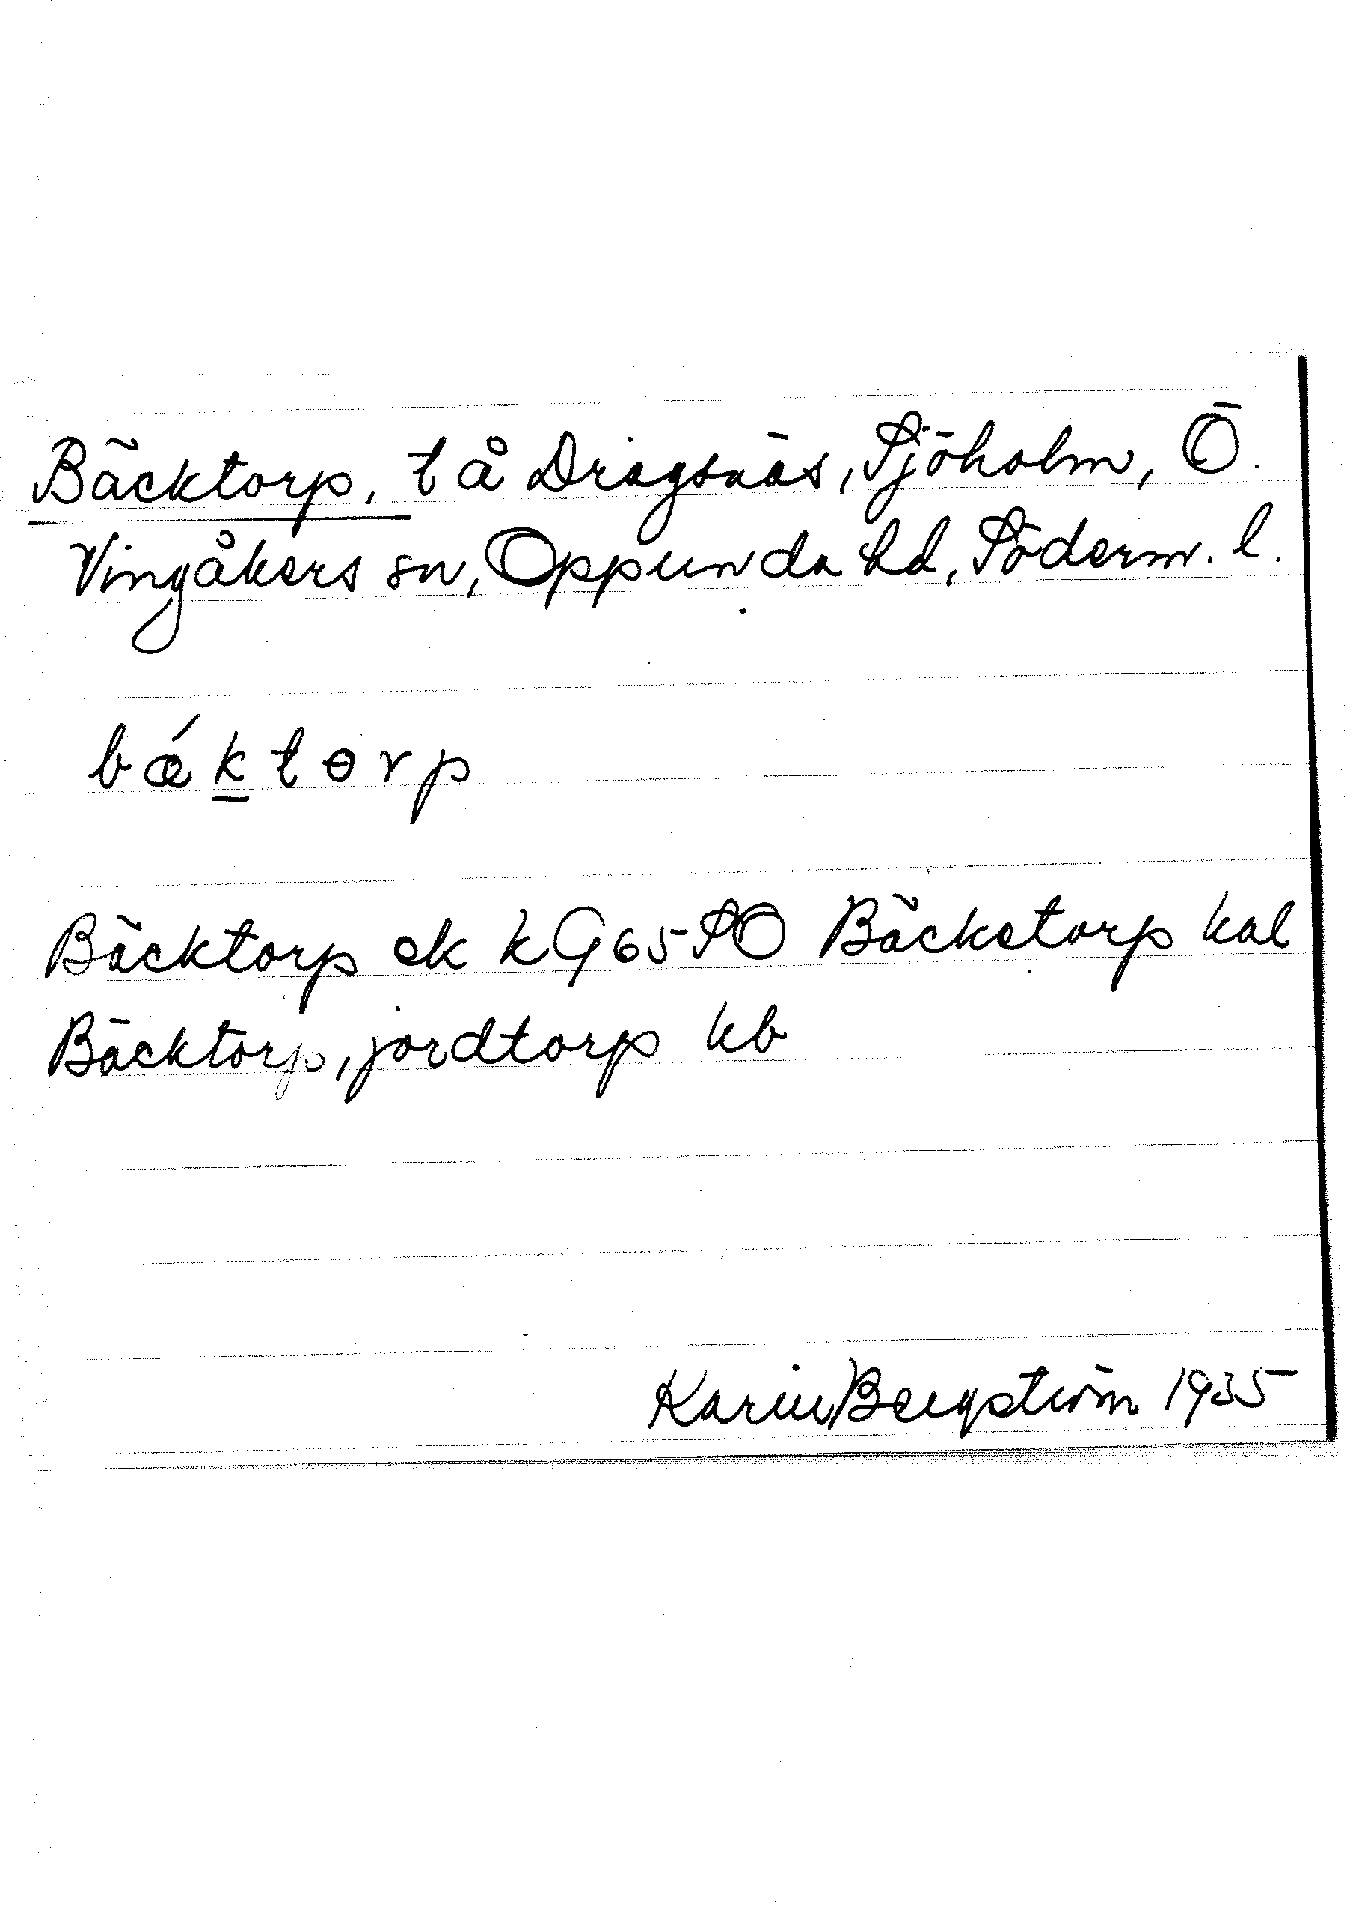 Bäcktorp, t å Dragsnäs, Sjöholm, Ö.
Vingåkers sn, Oppunda hd, Söderm. l.
bǽktɵrp
Bäcktorp ek k G65 SO Bäcketorp kal
Bäcktorp, jordtorp kb
Karin Bergström 1935